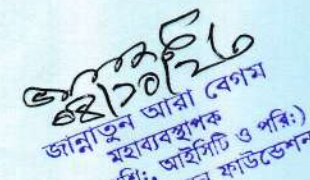 ০৪/১০/২৩
জান্নাতুন আরা বেগম
মহাব্যবস্থাপক
শি:, আইসিটি ও পরি:)
ন ফাউন্ডেশন